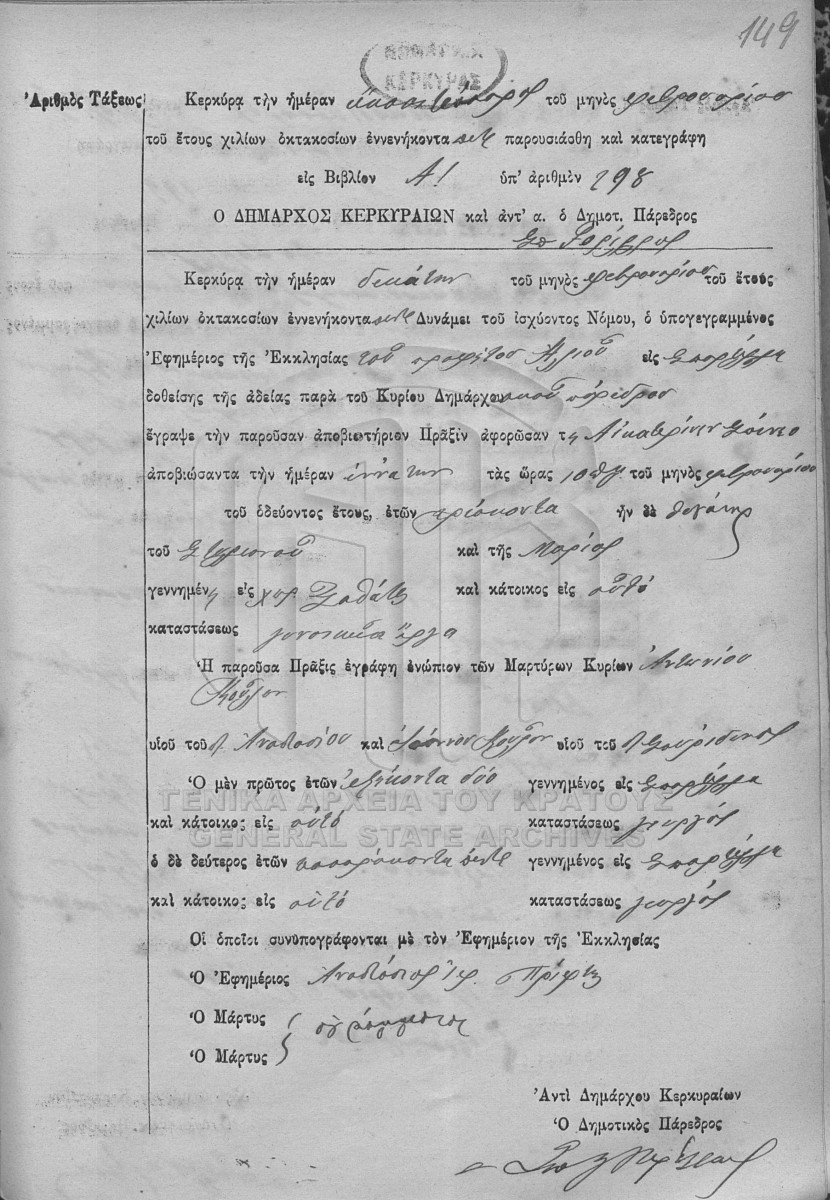 149
ΚΕΡΚΥΡΑΣ
Ἀριθμὸς Τάξεως
Κερκύρᾳ τὴν ἡμέραν τοῦ μηνὸς Φεβρουαρίου
τοῦ ἔτους χιλίων ὀκτακοσίων ἐννενήκοντα πέντε παρουσιάσθη καὶ κατεγράφη
εἰς Βιβλίον Α! ὑπ' ἀριθμὸν 298
Ο ΔΗΜΑΡΧΟΣ ΚΕΡΚΥΡΑΙΩΝ καὶ ἀντ' α. ὁ Δημοτ. Πάρεδρος
Σπ
Κερκύρᾳ τὴν ἡμέραν δεκάτην τοῦ μηνὸς Φεβρουαρίου τοῦ ἔτους
χιλίων ὀκτακοσίων ἐννενήκοντα πέντε Δυνάμει τοῦ ἰσχύοντος Νόμου, ὁ ὑπογεγραμμένος
Ἐφημέριος τῆς Ἐκκλησίας τοῦ προφήτου Ἠλιοῦ εἰς Σπαρτύλλα
δοθείσης τῆς ἀδείας παρὰ τοῦ Κυρίου Δημάρχου πάρεδρου
ἔγραψε τὴν παροῦσαν ἀποβιωτήριον Πρᾶξιν ἀφορῶσαν τη Αἰκατερίνην
ἀποβιώσαντα τὴν ἡμέραν ἐννάτην τὰς ὥρας 10 τοῦ μηνὸς Φεβρουαρίου
τοῦ ὁδεύοντος ἔτους, ἐτῶν τριάκοντα ἦν δὲ θυγάτηρ
τοῦ Στυλιανοῦ καὶ τῆς Μαρίας
γεννημένη εἰς χωρ. καὶ κάτοικος εἰς αὐτό
καταστάσεως γυναικεῖα ἔργα
Ἡ παροῦσα Πρᾶξις ἐγράφη ἐνώπιον τῶν Μαρτύρων Κυρίων Ἀντωνίου
υἱοῦ τοῦ π. Ἀναστασίου καὶ Ἰωάννου υἱοῦ τοῦ π. Σπυρίδωνος
Ὁ μὲν πρῶτος ἐτῶν ἑξήκοντα δύο γεννημένος εἰς Σπαρτύλλα
ΓΕΝΙΚΑ ΑΡΧΕΙΑ ΤΟΥ ΚΡΑΤΟΥΣ
καὶ κάτοικος εἰς αὐτό καταστάσεως γεωργός
GENERAL STATE ARCHIVES
ὁ δὲ δεύτερος ἐτῶν τεσσαράκοντα πέντε γεννημένος εἰς Σπαρτύλλα
καὶ κάτοικος εἰς αὐτό καταστάσεως γεωργός
Οἱ ὁποῖοι συνυπογράφονται μὲ τὸν Ἐφημέριον τῆς Ἐκκλησίας
Ὁ Ἐφημέριος Ἀναστάσιος ἱερ. Πρίφτης
Ὁ Μάρτυς ἀγράμματος
Ὁ Μάρτυς
Ἀντὶ Δημάρχου Κερκυραίων
Ὁ Δημοτικὸς Πάρεδρος